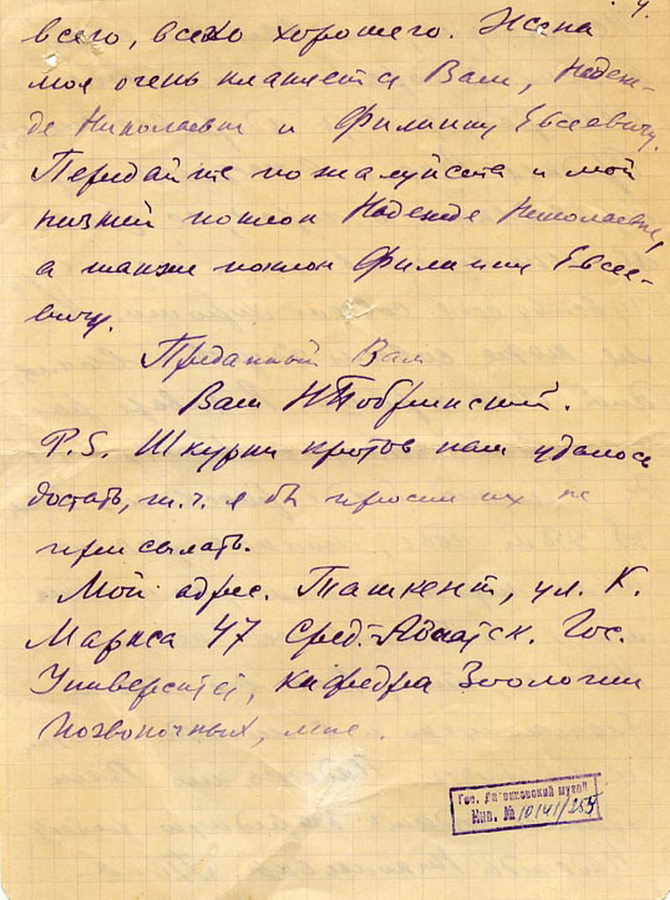 4.
всего, всего хорошего. Жена
моя очень кланяется Вам, Надеж-
де Николаевне и Филиппу Евсеевичу.
Передайте пожалуйста и мой
низкий поклон Надежде Николаевне,
а также поклон Филиппу Евсее-
вичу.
Преданный Вам
Ваш Н Бобринский.
P.S. Шкурки кротов нам удалось
достать, т.ч. я бы просил их не
присылать.
Мой адрес. Ташкент, ул. К.
Маркса 47 Сред.-Азиатск. Гос.
Университет, кафедра Зоологии
позвоночных, мне.
Гос. Дарвиновский музей
Инв. № 10141/255